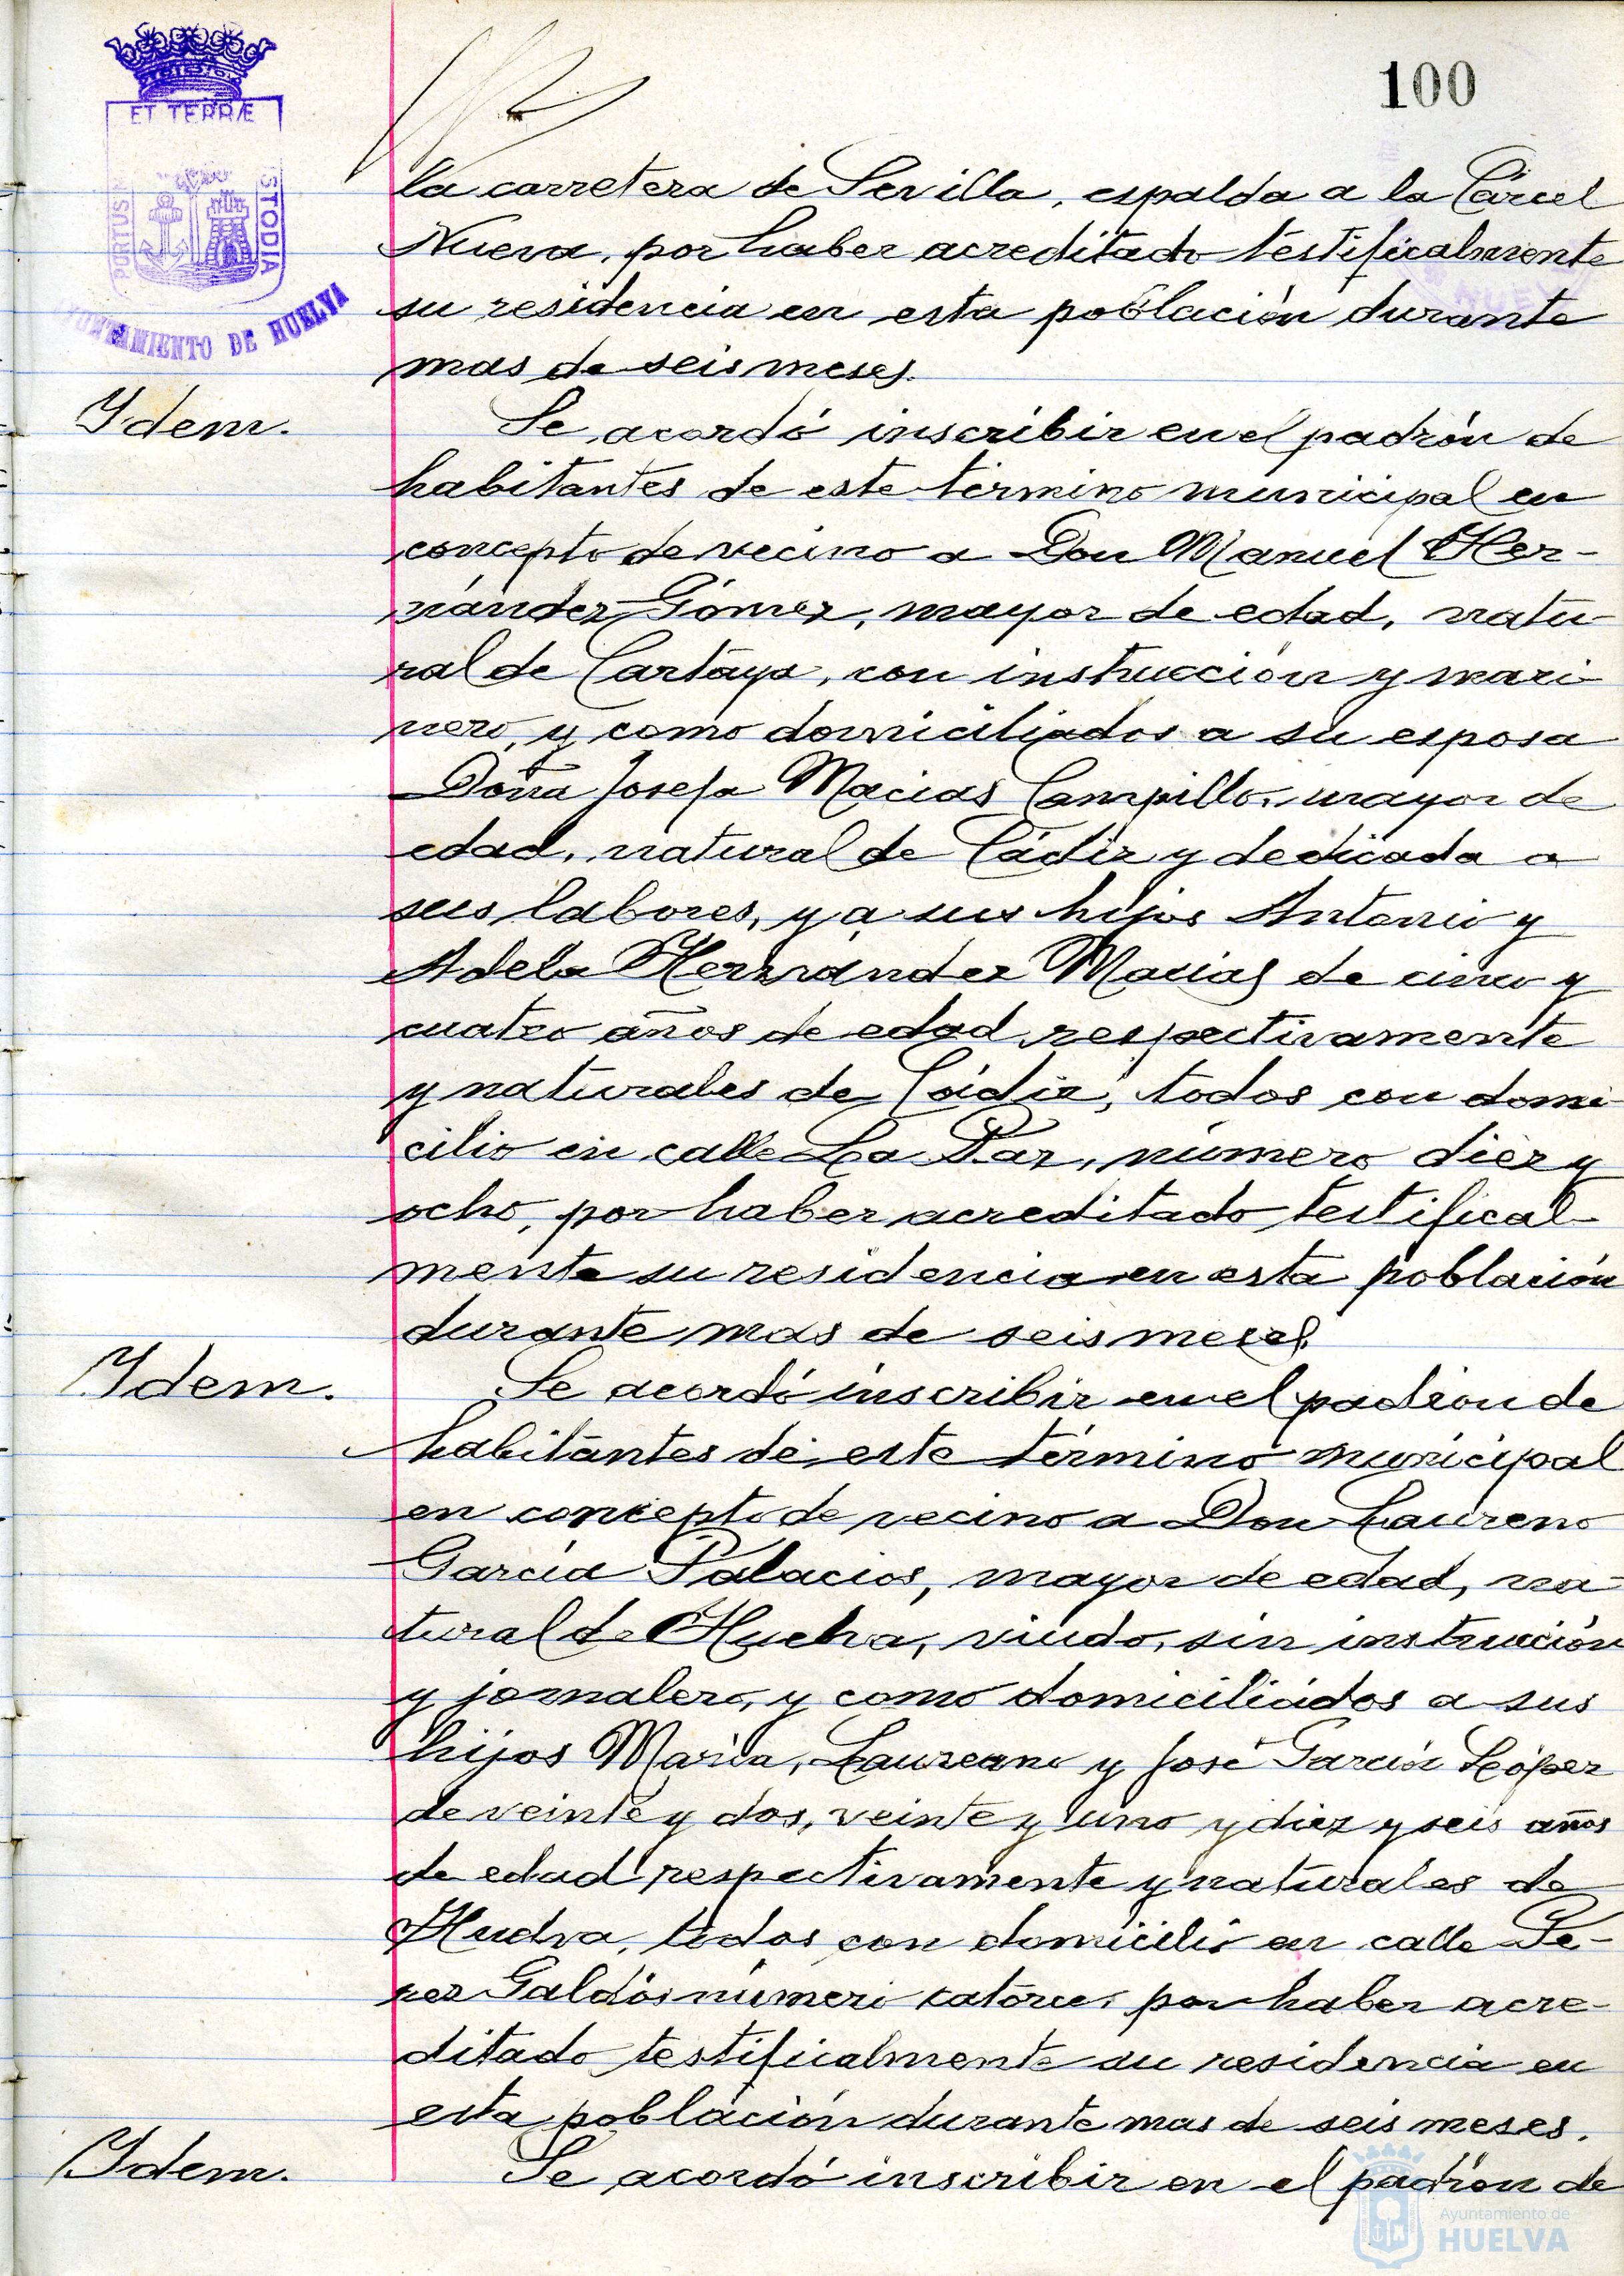 100
ET TERRÆ
PORTUS M
STODIA
AYUNTAMIENTO DE HUELVA
la carretera de Sevilla, espalda a la Cárcel
Nueva, por haber acreditado testificalmente
su residencia en esta población durante
mas de seis meses.
Ydem.
Se acordó inscribir en el padrón de
habitantes de este término municipal en
concepto de vecino a Don Manuel Her-
nández Gómez, mayor de edad, natu-
ral de Cartaya, con instrucción y mari-
nero, y como domiciliados a su esposa
Doña Josefa Macias Campillo, mayor de
edad, natural de Cádiz y dedicada a
sus labores, y a sus hijos Antonio y
Adela Hernández Macias de cinco y
cuatro años de edad respectivamente
y naturales de Cádiz, todos con domi-
cilio en calle La Paz, número diez y
ocho, por haber acreditado testifical-
mente su residencia en esta población
durante mas de seis meses.
Ydem.
Se acordó inscribir en el padrón de
habitantes de este término municipal
en concepto de vecino a Don Laureno
García Palacios, mayor de edad, na-
tural de Huelva, viudo, sin instrucción
y jornalero, y como domiciliados a sus
hijos María, Laureano y José García López
de veinte y dos, veinte y uno y diez y seis años
de edad respectivamente y naturales de
Huelva, todos con domicilio en calle Pé-
rez Galdós número catorce, por haber acre-
ditado testificalmente su residencia en
esta población durante mas de seis meses.
Ydem.
Se acordó inscribir en el padrón de
Ayuntamiento de
HUELVA